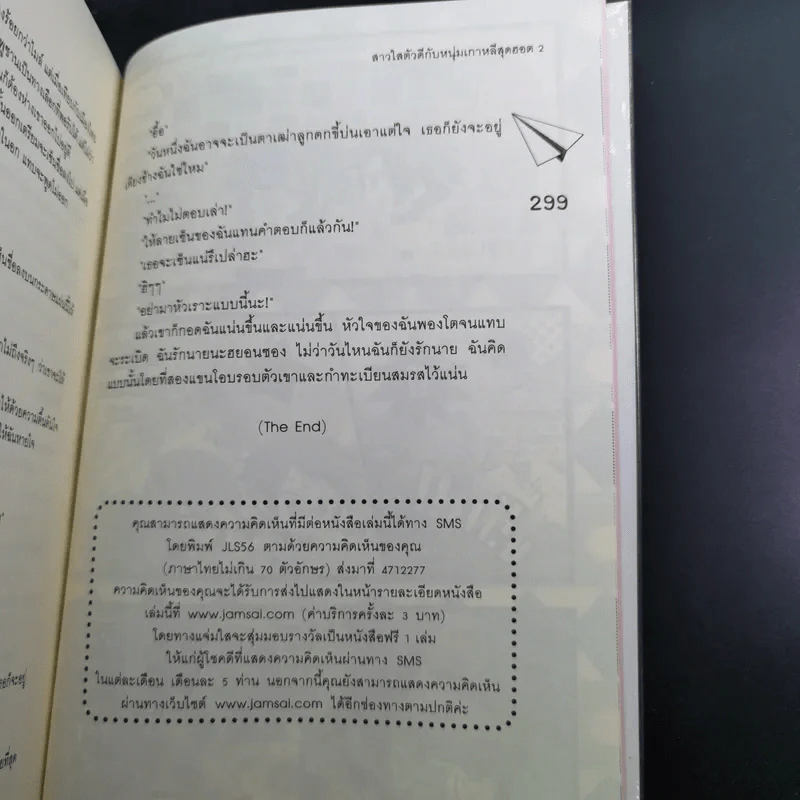 สาวใสตัวดีกับหนุ่มเกาหลีสุดฮอต 2
"อื้อ"
"วันหนึ่งฉันอาจจะเป็นตาเฒ่าลูกตกขี้บ่นเอาแต่ใจ เธอก็ยังจะอยู่
เคียงข้างฉันใช่ไหม"
"..."
299
"ทำไมไม่ตอบเล่า!"
"ให้ลายเซ็นของฉันแทนคำตอบก็แล้วกัน!"
"เธอจะเซ็นแน่รึเปล่าฮะ"
"ฮิๆๆ"
"อย่ามาหัวเราะแบบนี้นะ!"
แล้วเขาก็กอดฉันแน่นขึ้นและแน่นขึ้น หัวใจของฉันพองโตจนแทบ
จะระเบิด ฉันรักนายนะฮยอนซอง ไม่ว่าวันไหนฉันก็ยังรักนาย ฉันคิด
แบบนั้นโดยที่สองแขนโอบรอบตัวเขาและกำทะเบียนสมรสไว้แน่น
(The End)
คุณสามารถแสดงความคิดเห็นที่มีต่อหนังสือเล่มนี้ได้ทาง SMS
โดยพิมพ์ JLS56 ตามด้วยความคิดเห็นของคุณ
(ภาษาไทยไม่เกิน 70 ตัวอักษร) ส่งมาที่ 4712277
ความคิดเห็นของคุณจะได้รับการส่งไปแสดงในหน้ารายละเอียดหนังสือ
เล่มนี้ที่ www.jamsai.com (ค่าบริการครั้งละ 3 บาท)
โดยทางแจ่มใสจะสุ่มมอบรางวัลเป็นหนังสือฟรี 1 เล่ม
ให้แก่ผู้โชคดีที่แสดงความคิดเห็นผ่านทาง SMS
ในแต่ละเดือน เดือนละ 5 ท่าน นอกจากนี้คุณยังสามารถแสดงความคิดเห็น
ผ่านทางเว็บไซต์ www.jamsai.com ได้อีกช่องทางตามปกติค่ะ